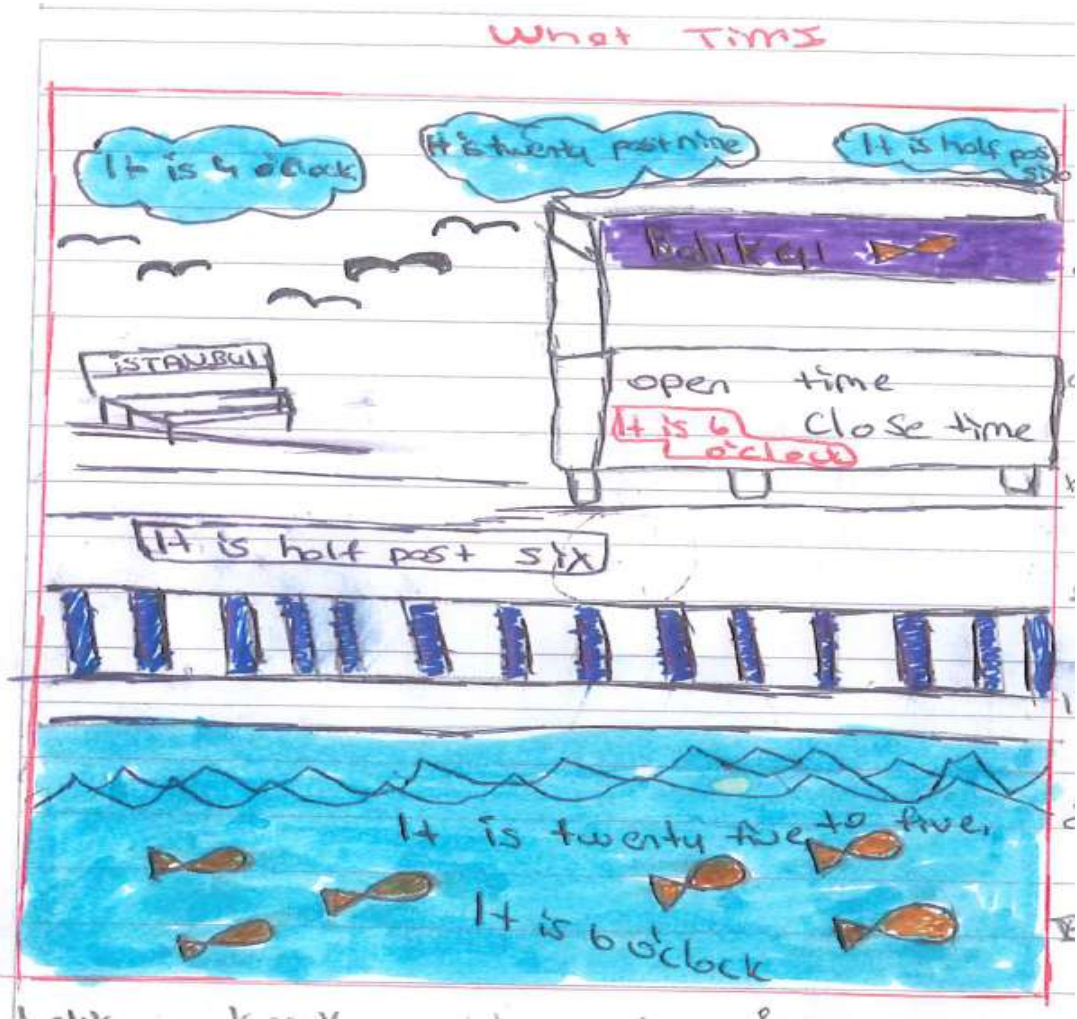 What Time
It is 4 o'clock
It is twenty past nine
It is half past
six
Balıkçı
iSTANBUL
open time
It is 6
o'clock
close time
It is half past six
It is twenty five to five.
It is 6 o'clock